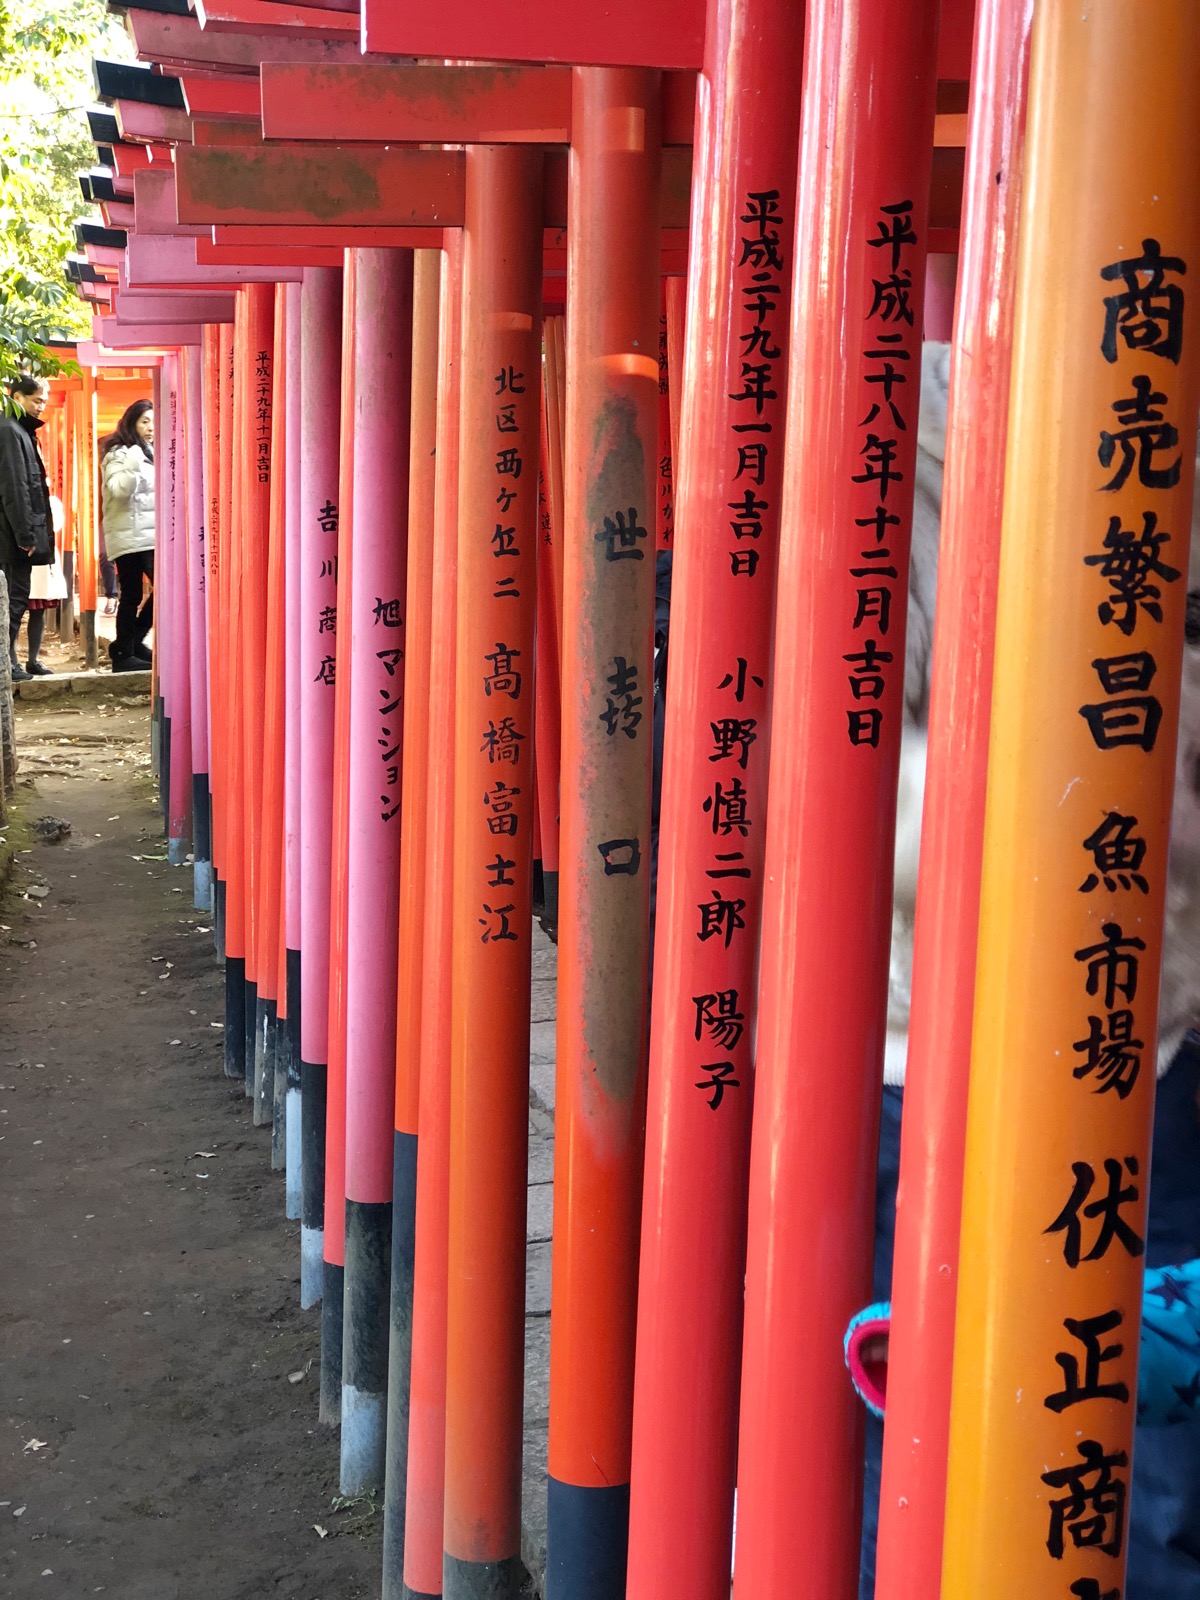 商売繁昌 魚市場 伏正商
平成二十八年十二月吉日
平成二十九年一月吉日 小野慎二郎 陽子
世㐂口
北区西ケ丘二 髙橋富士江
旭マンション
吉川商店
平成二十九年十一月吉日
平成二十九年十一月八日